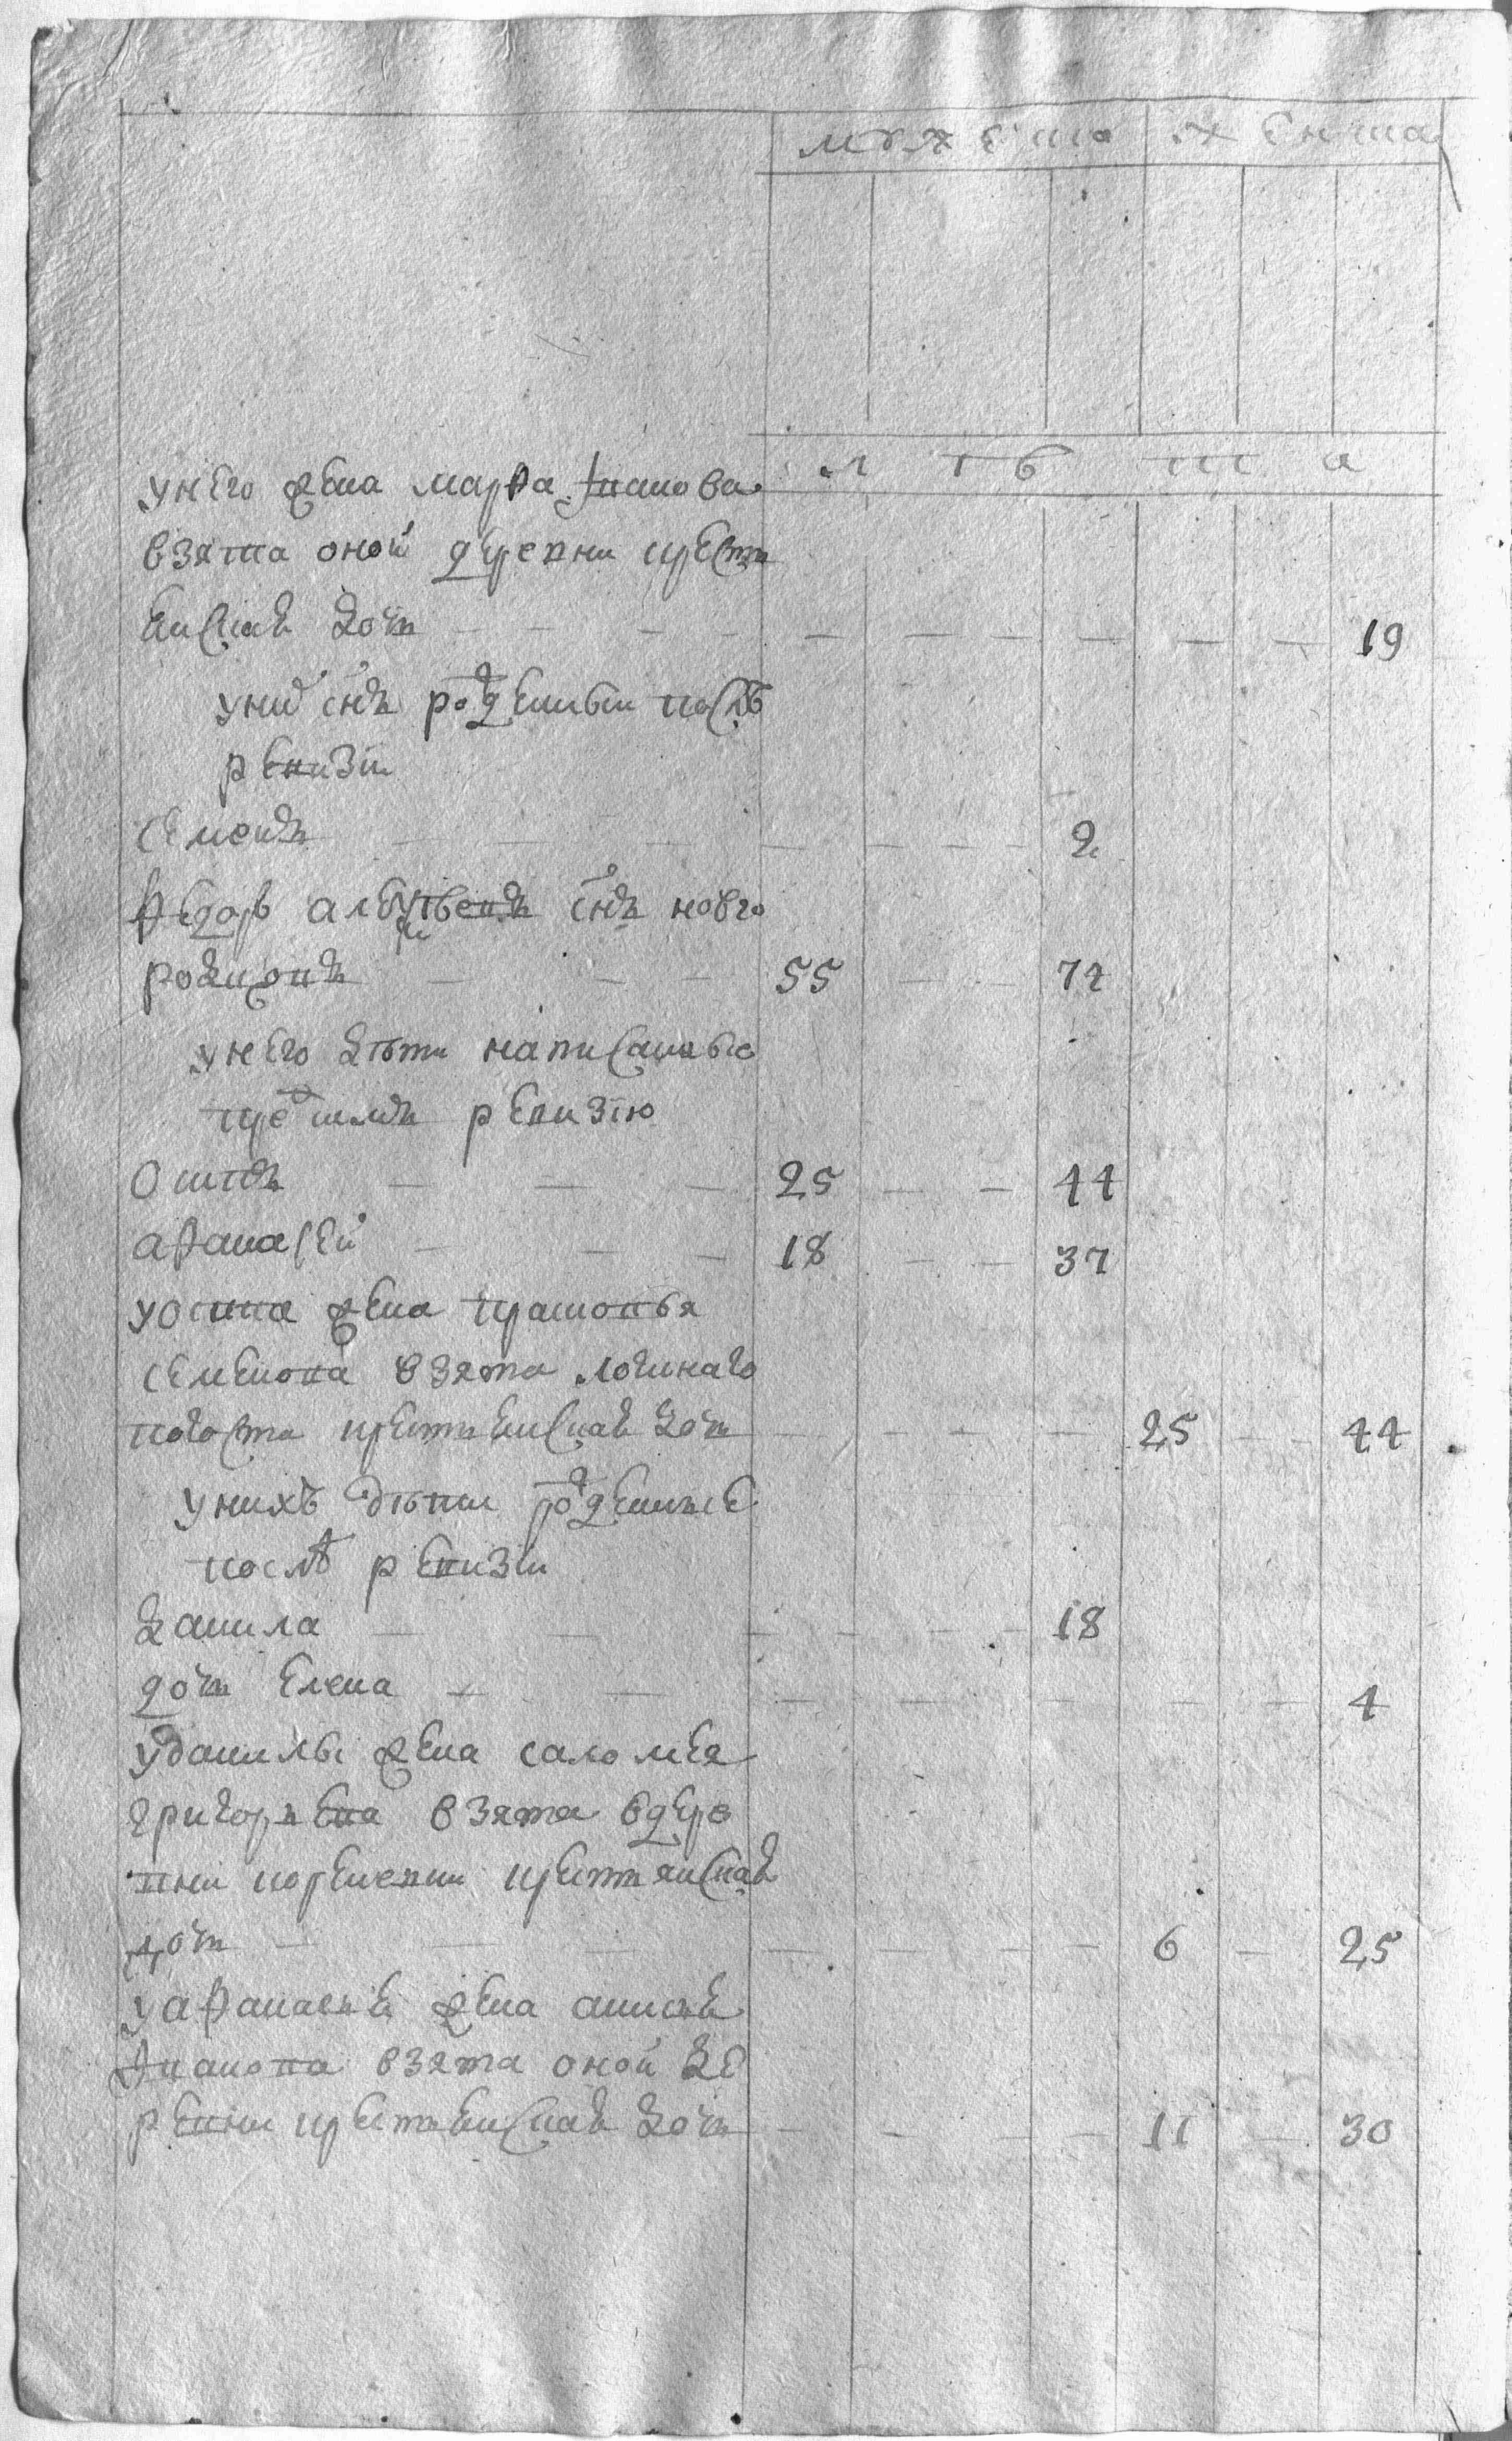 мужеска женска
лѣта
у него жена марфа иванова
взята оной деревни крестья
енская дочь 19
у них сынъ рожденный послѣ
ревизіи
Семенъ 2
Федоръ сынъ новго
родионъ 55 74
у него дѣти написанные
пре шлую ревизію
Осипъ 25 44
афанасей 18 37
у осипа жена прасковья
семенова взята
погоста крестьенская дочь 25 44
у нихъ дѣти рожденные
послѣ ревизіи
данила 18
дочь Елена 4
у данилы жена саломея
григорьева взята в дере
вни крестьянская
дочь 6 25
у афанасея жена анисья
иванова взята оной де
ревни крестьенская дочь 11 30